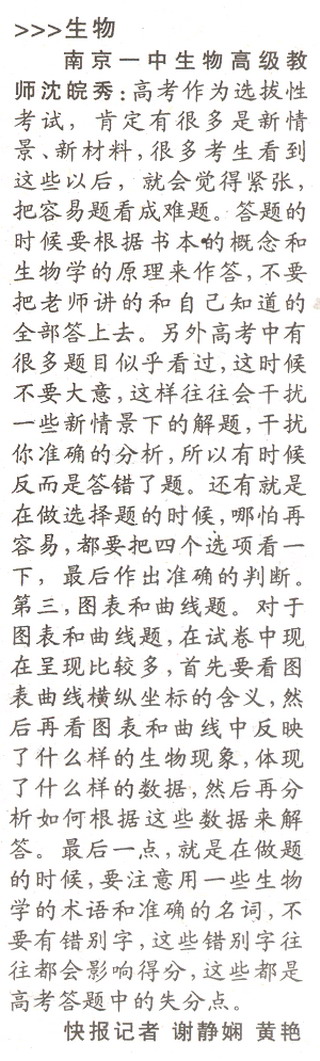 >>>生物
南京一中生物高级教
师沈皖秀:高考作为选拔性
考试，肯定有很多是新情
景、新材料,很多考生看到
这些以后，就会觉得紧张,
把容易题看成难题。答题的
时候要根据书本的概念和
生物学的原理来作答,不要
把老师讲的和自己知道的
全部答上去。另外高考中有
很多题目似乎看过,这时候
不要大意,这样往往会干扰
一些新情景下的解题,干扰
你准确的分析,所以有时候
反而是答错了题。还有就是
在做选择题的时候,哪怕再
容易,都要把四个选项看一
下，最后作出准确的判断。
第三,图表和曲线题。对于
图表和曲线题,在试卷中现
在呈现比较多,首先要看图
表曲线横纵坐标的含义,然
后再看图表和曲线中反映
了什么样的生物现象,体现
了什么样的数据,然后再分
析如何根据这些数据来解
答。最后一点,就是在做题
的时候,要注意用一些生物
学的术语和准确的名词,不
要有错别字,这些错别字往
往都会影响得分,这些都是
高考答题中的失分点。
快报记者 谢静娴 黄艳